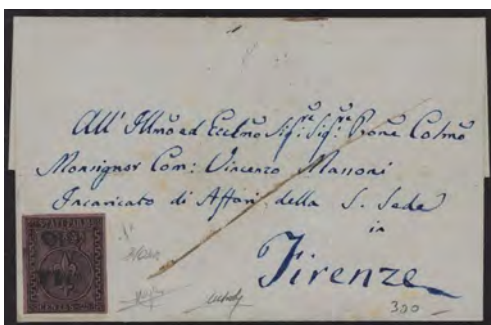 All' Illmo ed Ecclmo Sigre Sigre Prone Colmo
Monsignor Com: Vincenzo Massoni
Incaricato di Affari della S. Sede
in
Firenze
STATI PARM
CENTES
300 —